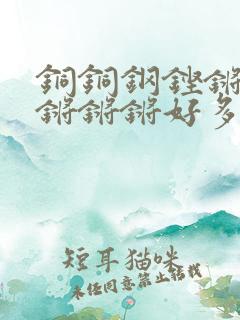 銅銅鋼鏗鏘
鏘鏘鏘好多
短耳猫咪
未经同意禁止转载